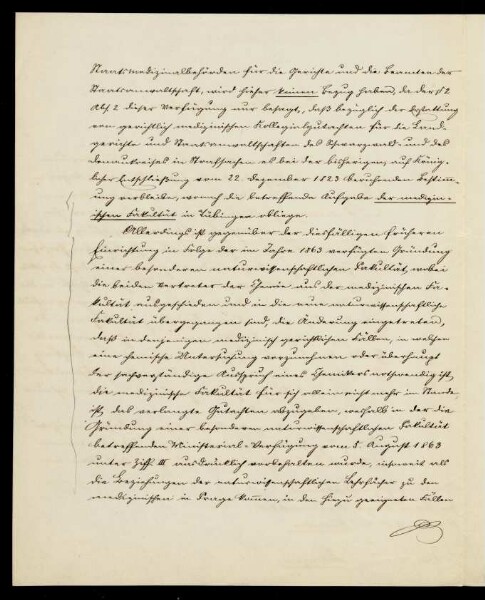 Staatsmedizinalbehörden für die Gerichte und die Beamten der
Staatsanwaltschaft, wird hieher keinen Bezug haben, da der § 2
Abs. 2 dieser Verfügung nur besagt, daß bezüglich der Erstattung
von gerichtlich medizinischen Kollegialgutachten für die Land-
gerichte und Staatsanwaltschaften des Schwarzwald- und des
Donaukreises in Strafsachen es bei der bisherigen, auf König-
licher Entschließung vom 22. Dezember 1823 beruhenden Bestimm-
ung verbleibe, wonach die betreffende Aufgabe der medizin-
ischen Fakultät in Tübingen obliege.
Allerdings ist gegenüber der diesfälligen früheren
Einrichtung in Folge der im Jahre 1863 verfügten Gründung
einer besonderen naturwissenschaftlichen Fakultät, wobei
die beiden Vertreter der Chemie aus der medizinischen Fa-
kultät ausgeschieden und in die neue naturwissenschaftliche
Fakultät übergegangen sind, die Änderung eingetreten,
daß in denjenigen medizinisch gerichtlichen Fällen, in welchen
eine chemische Untersuchung vorzunehmen oder überhaupt
der sachverständige Ausspruch eines Chemikers nothwendig ist,
die medizinische Fakultät für sich allein nicht mehr im Stande
ist, das verlangte Gutachten abzugeben, weshalb in der die
Gründung einer besonderen naturwissenschaftlichen Fakultät
betreffenden Ministerial-Verfügung vom 5. August 1863
unter Ziff. III ausdrücklich vorbehalten wurde, insoweit als
die Beziehungen der naturwissenschaftlichen Lehrfächer zu den
medizinischen in Frage kommen, in den hiezu geeigneten Fällen